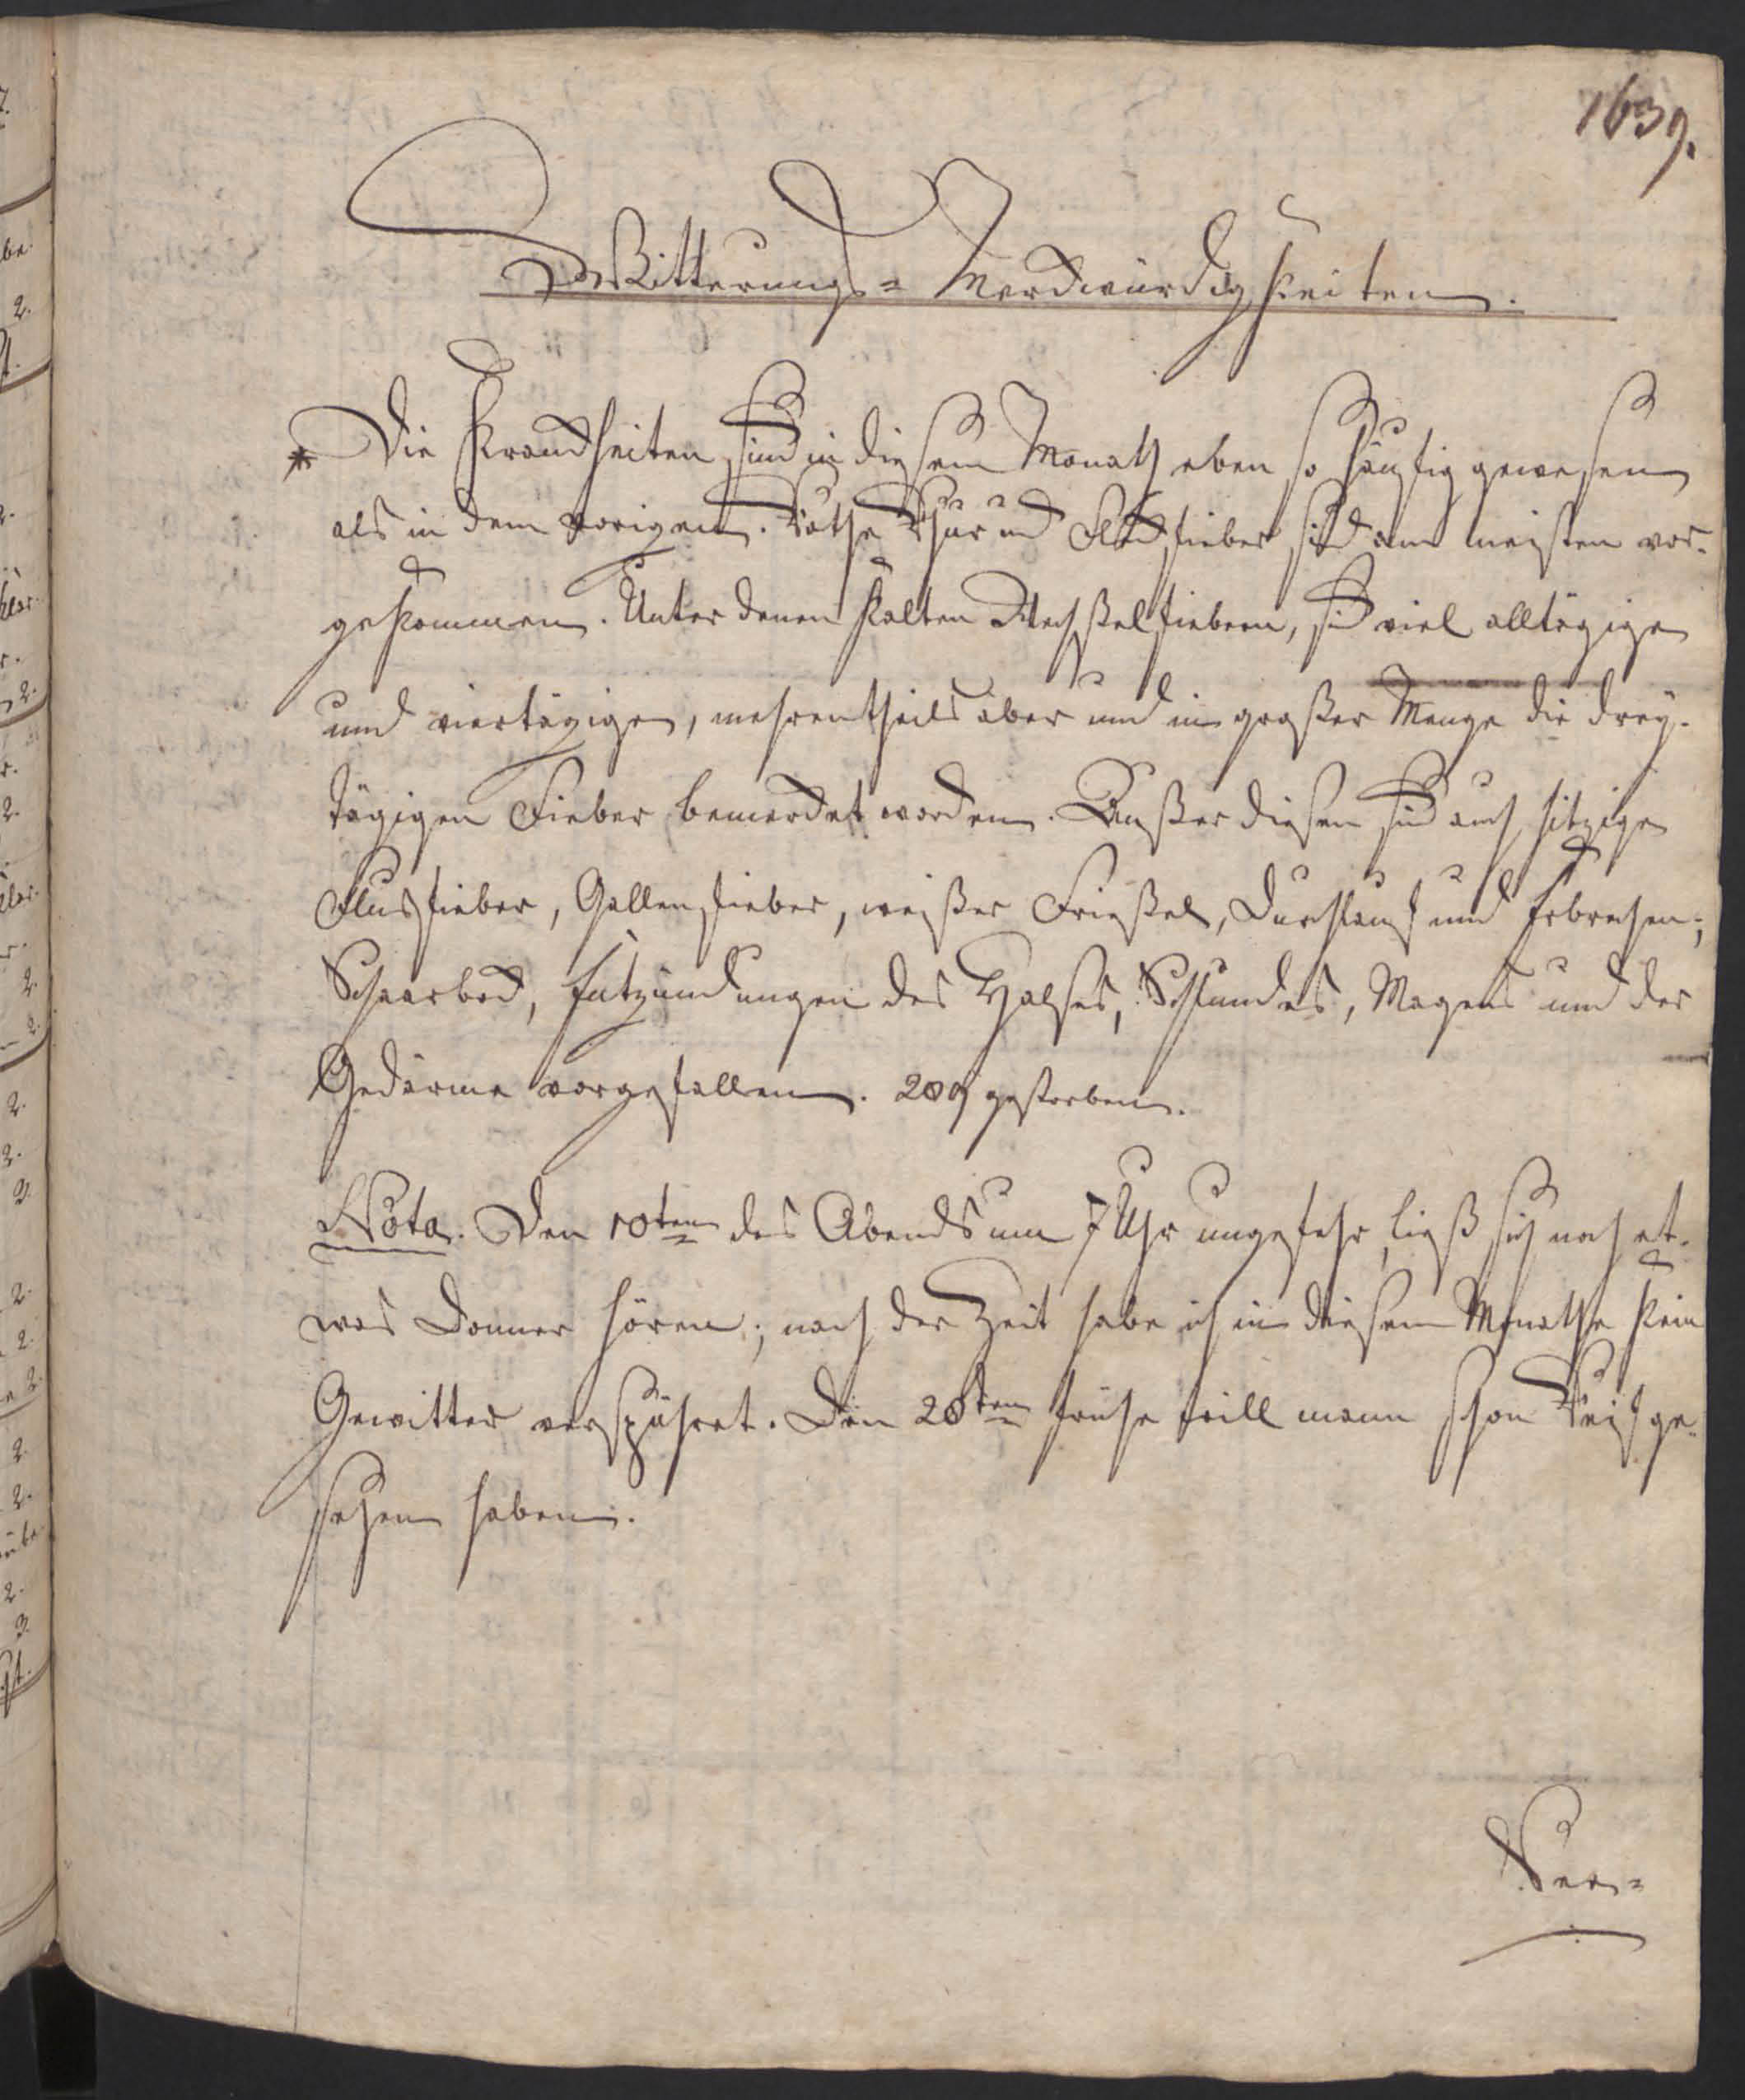 1639.
Witterungs= Merckwürdigkeiten.
* Die Kranckheiten sind in diesem Monath eben so häufig gewesen
als in dem vorigen. Rothe Ruhr und Fleckfieber sind am meisten vor-
gekommen. Unter denen kalten Wechßelfiebern, sind viel alltägige
und viertägige, mehrentheils aber und in großer Menge die drey-
tägigen Fieber bemercket worden. Außer diesen sind auch hitzige
Flusfieber, Gallenfieber, weißer Frießel, Durchlauf und Erbrechen;
Schaarbock, Entzündungen des Halses, Schlundes, Magens und der
Gedärme vorgefallen. 209 gestorben.
Nota. Den 10ten des Abends um 7 Uhr ungefehr, ließ sich noch et-
was Donner hören; nach der Zeit habe ich in diesem Monathe kein
Gewitter verspühret. Den 28ten frühe will mann schon Reif ge-
sehen haben.
Ver=